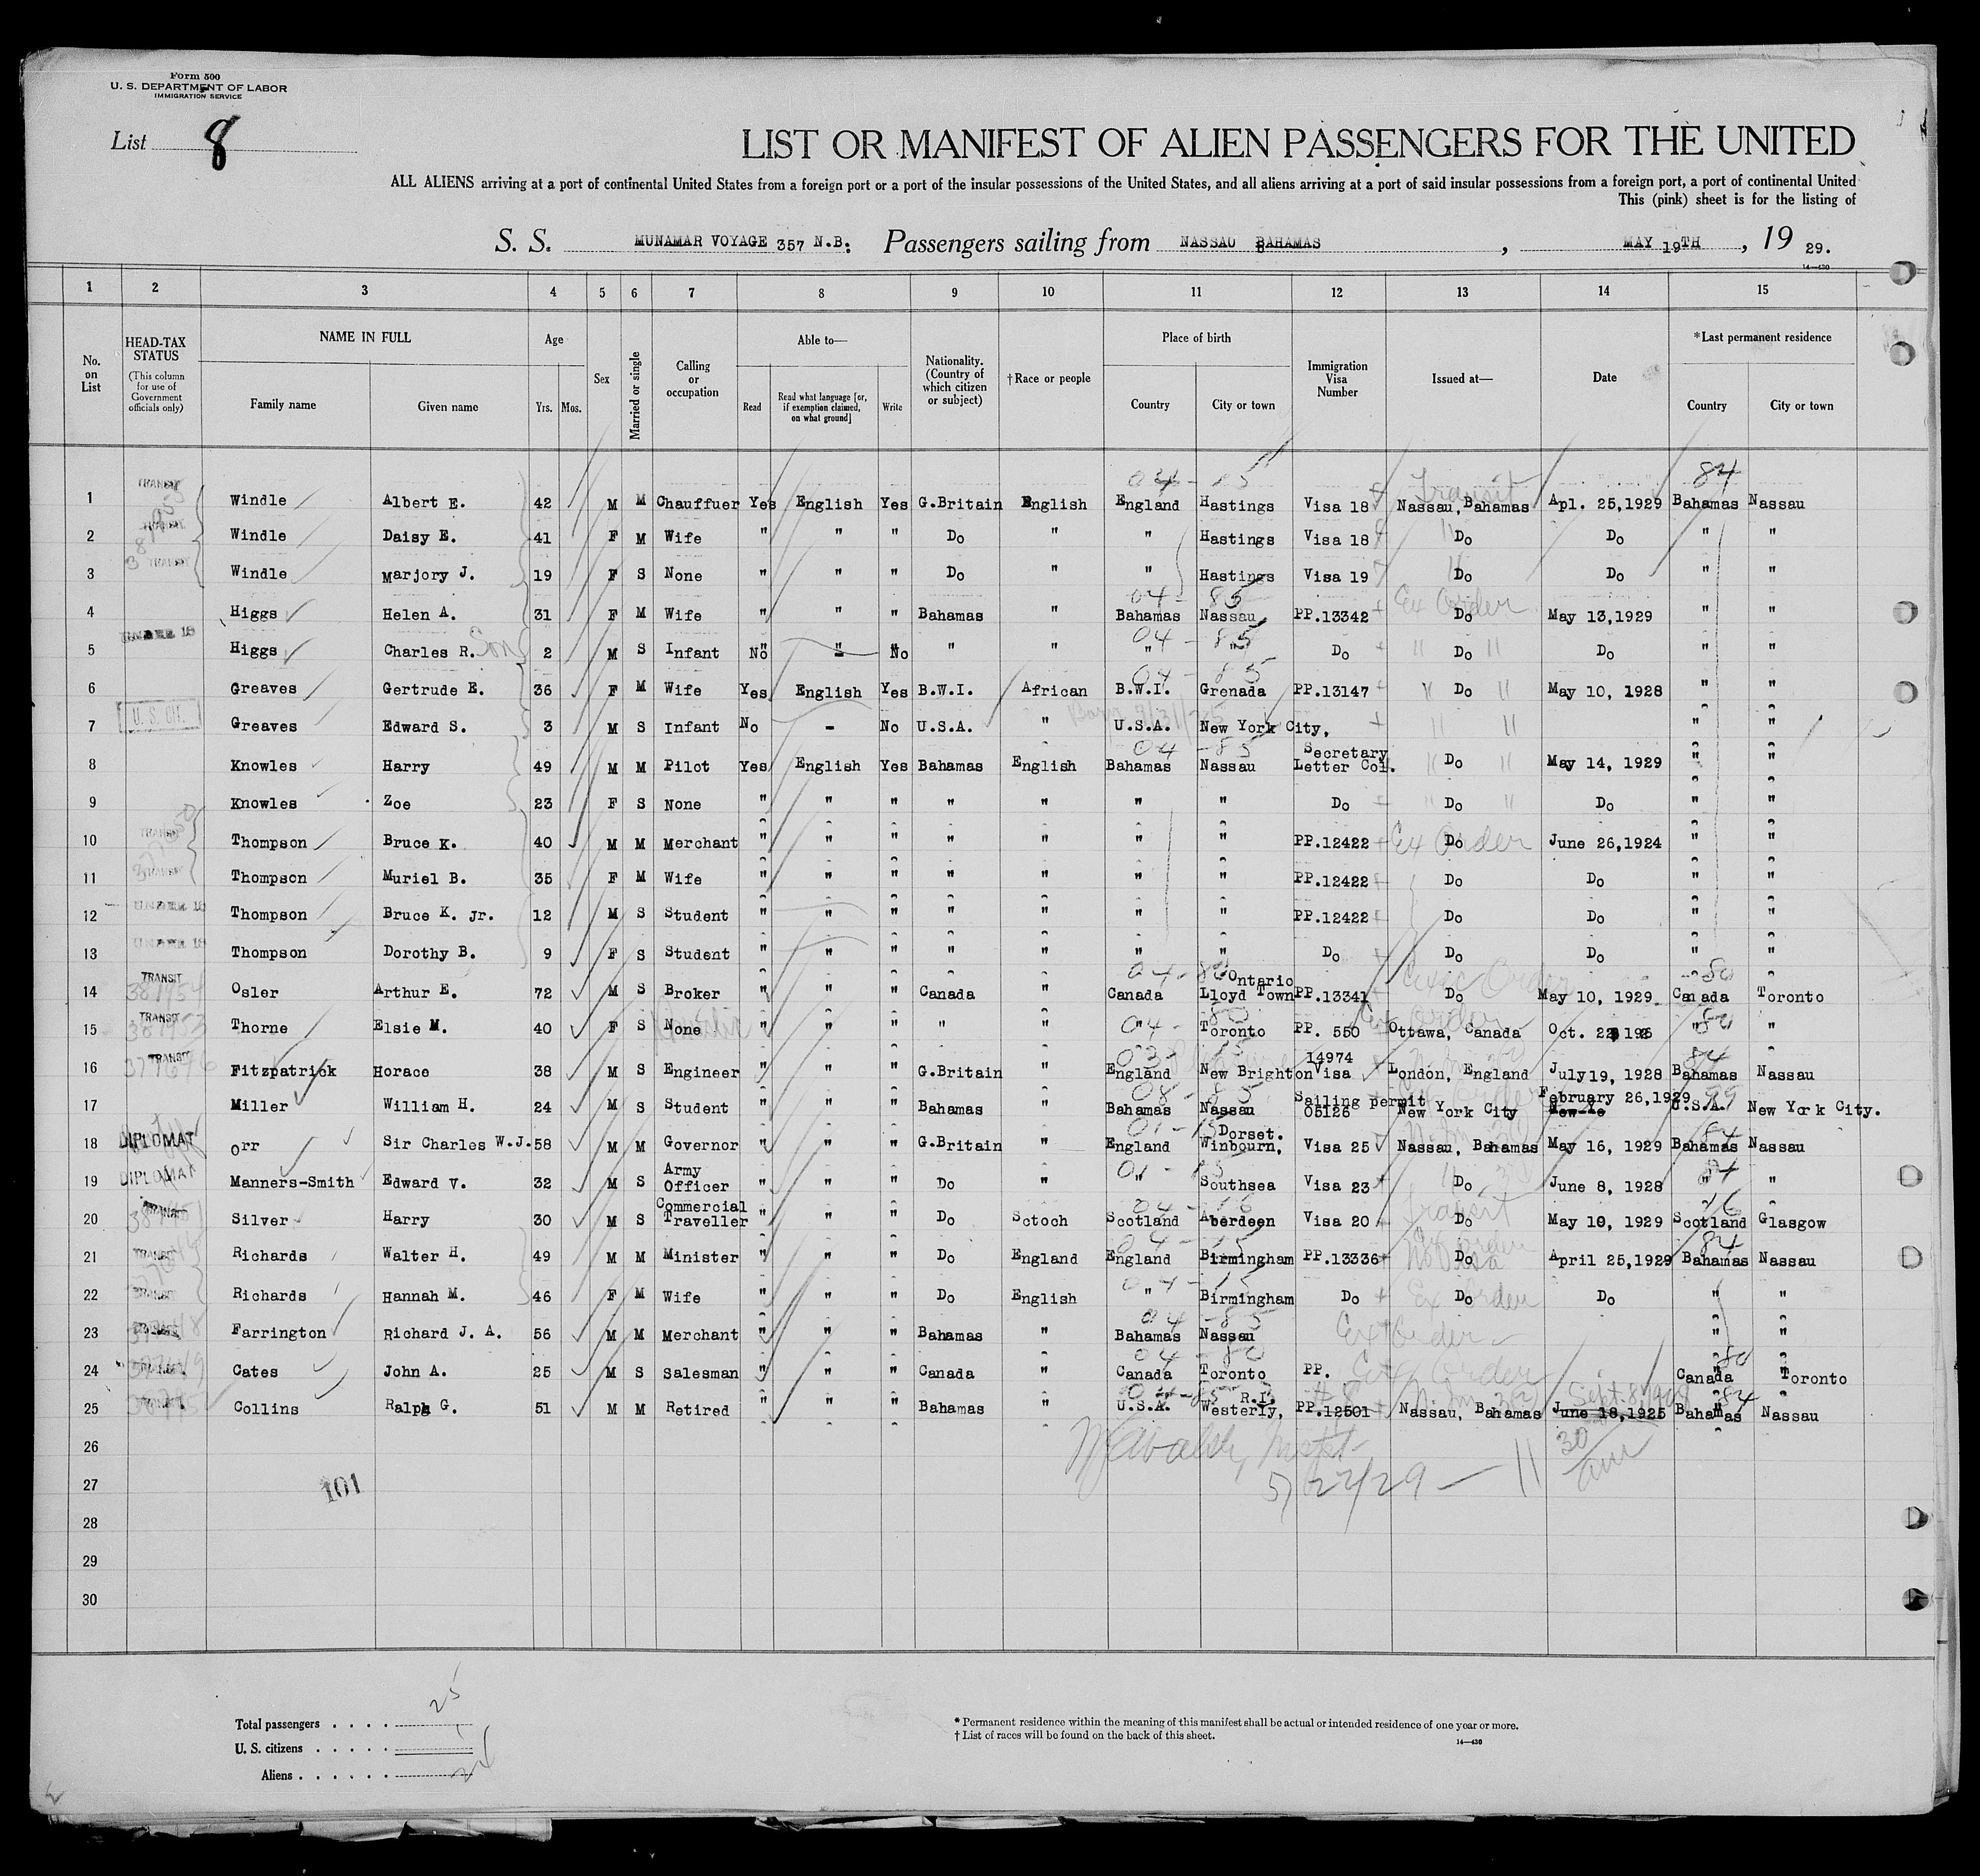 Form 500
U. S. DEPARTMENT OF LABOR
IMMIGRATION SERVICE
List 8
LIST OR MANIFEST OF ALIEN PASSENGERS FOR THE UNITED
ALL ALIENS arriving at a port of continental United States from a foreign port or a port of the insular possessions of the United States, and all aliens arriving at a port of said insular possessions from a foreign port, a port of continental United
This (pink) sheet is for the listing of
S. S. MUNAMAR VOYAGE 357 N.B. Passengers sailing from NASSAU BAHAMAS, MAY 19TH, 19 29.
14—430
1 2 3 4 5 6 7 8 9 10 11 12 13 14 15
No. on List
HEAD-TAX STATUS (This column for use of Government officials only)
NAME IN FULL Family name Given name
Age Yrs. Mos.
Sex
Married or single
Calling or occupation
Able to— Read Read what language [or, if exemption claimed, on what ground] Write
Nationality. (Country of which citizen or subject)
†Race or people
Place of birth Country City or town
Immigration Visa Number
Issued at—
Date
*Last permanent residence Country City or town
1 TRANSIT Windle Albert E. 42 M M Chauffuer Yes English Yes G.Britain English England Hastings Visa 18 Nassau, Bahamas Apl. 25,1929 Bahamas Nassau
04 - 15 Transit 84
2 TRANSIT Windle Daisy E. 41 F M Wife " " " Do " " Hastings Visa 18 Do Do " "
3 TRANSIT Windle Marjory J. 19 F S None " " " Do " " Hastings Visa 19 Do Do " "
4 Higgs Helen A. 31 F M Wife " " " Bahamas " Bahamas Nassau PP.13342 Do May 13,1929 " "
04 - 85 Ex Order
5 UNDER 16 Higgs Charles R. Son 2 M S Infant No " No " " " " Do Do Do " "
04 - 85
6 Greaves Gertrude E. 36 F M Wife Yes English Yes B.W.I. African B.W.I. Grenada PP.13147 Do May 10, 1928 " "
04 - 85
7 U.S. CIT. Greaves Edward S. 3 M S Infant No - No U.S.A. " U.S.A. New York City, " "
8 Knowles Harry 49 M M Pilot Yes English Yes Bahamas English Bahamas Nassau Secretary Letter Col. Do May 14, 1929 " "
04 - 85
9 Knowles Zoe 23 F S None " " " " " " " Do Do Do " "
10 TRANSIT Thompson Bruce K. 40 M M Merchant " " " " " " " PP.12422 Do June 26,1924 " "
Ex Order
11 TRANSIT Thompson Muriel B. 35 F M Wife " " " " " " " PP.12422 Do Do " "
12 UNDER 16 Thompson Bruce K. Jr. 12 M S Student " " " " " " " PP.12422 Do Do " "
13 UNDER 16 Thompson Dorothy B. 9 F S Student " " " " " " " Do Do Do " "
14 TRANSIT Osler Arthur E. 72 M S Broker " " " Canada " Canada Ontario Lloyd Town PP.13341 Do May 10, 1929 Canada Toronto
04 - 80 Exec Order 80
15 TRANSIT Thorne Elsie M. 40 F S None " " " " " " Toronto PP. 550 Ottawa, Canada Oct. 192 " "
04 - 80 Ex Order 80
16 TRANSIT Fitzpatrick Horace 38 M S Engineer " " " G.Britain " England New Brighton 14974 Visa London, England July19, 1928 Bahamas Nassau
03 - 15 84
17 Miller William H. 24 M S Student " " " Bahamas " Bahamas Nassau Sailing permit 05126 New York City February 26,1929 U.S.A. New York City.
08 - 85 99
18 DIPLOMAT Orr Sir Charles W.J. 58 M M Governor " " " G.Britain " England Dorset. Winbourn, Visa 25 Nassau, Bahamas May 16, 1929 Bahamas Nassau
01 - 15 84
19 DIPLOMAT Manners-Smith Edward V. 32 M S Army Officer " " " Do " " Southsea Visa 23 Do June 8, 1928 " "
01 - 15 84
20 TRANSIT Silver Harry 30 M S Commercial Traveller " " " Do Sctoch Scotland Aberdeen Visa 20 Do May 10, 1929 Scotland Glasgow
04 - 16 Transit 16
21 TRANSIT Richards Walter H. 49 M M Minister " " " Do England England Birmingham PP.13336 Do April 25,1929 Bahamas Nassau
04 - 15 Ex Order No Visa 84
22 TRANSIT Richards Hannah M. 46 F M Wife " " " Do English " Birmingham Do Do Do " "
04 - 15 Ex Order
23 TRANSIT Farrington Richard J. A. 56 M M Merchant " " " Bahamas " Bahamas Nassau " "
04 - 85 Ex Order
24 TRANSIT Cates John A. 25 M S Salesman " " " Canada " Canada Toronto PP. Canada Toronto
04 - 80 Ex Order 80
25 TRANSIT Collins Ralph G. 51 M M Retired " " " Bahamas " U.S.A. R.I. Westerly, PP.12501 Nassau, Bahamas June 18,1925 Bahamas Nassau
84
26
27
28
29
30
5/22/29 — 11 30 am
101
Total passengers . . . . 25
U. S. citizens . . . . . 1
Aliens . . . . . . 24
* Permanent residence within the meaning of this manifest shall be actual or intended residence of one year or more.
† List of races will be found on the back of this sheet.
14—430